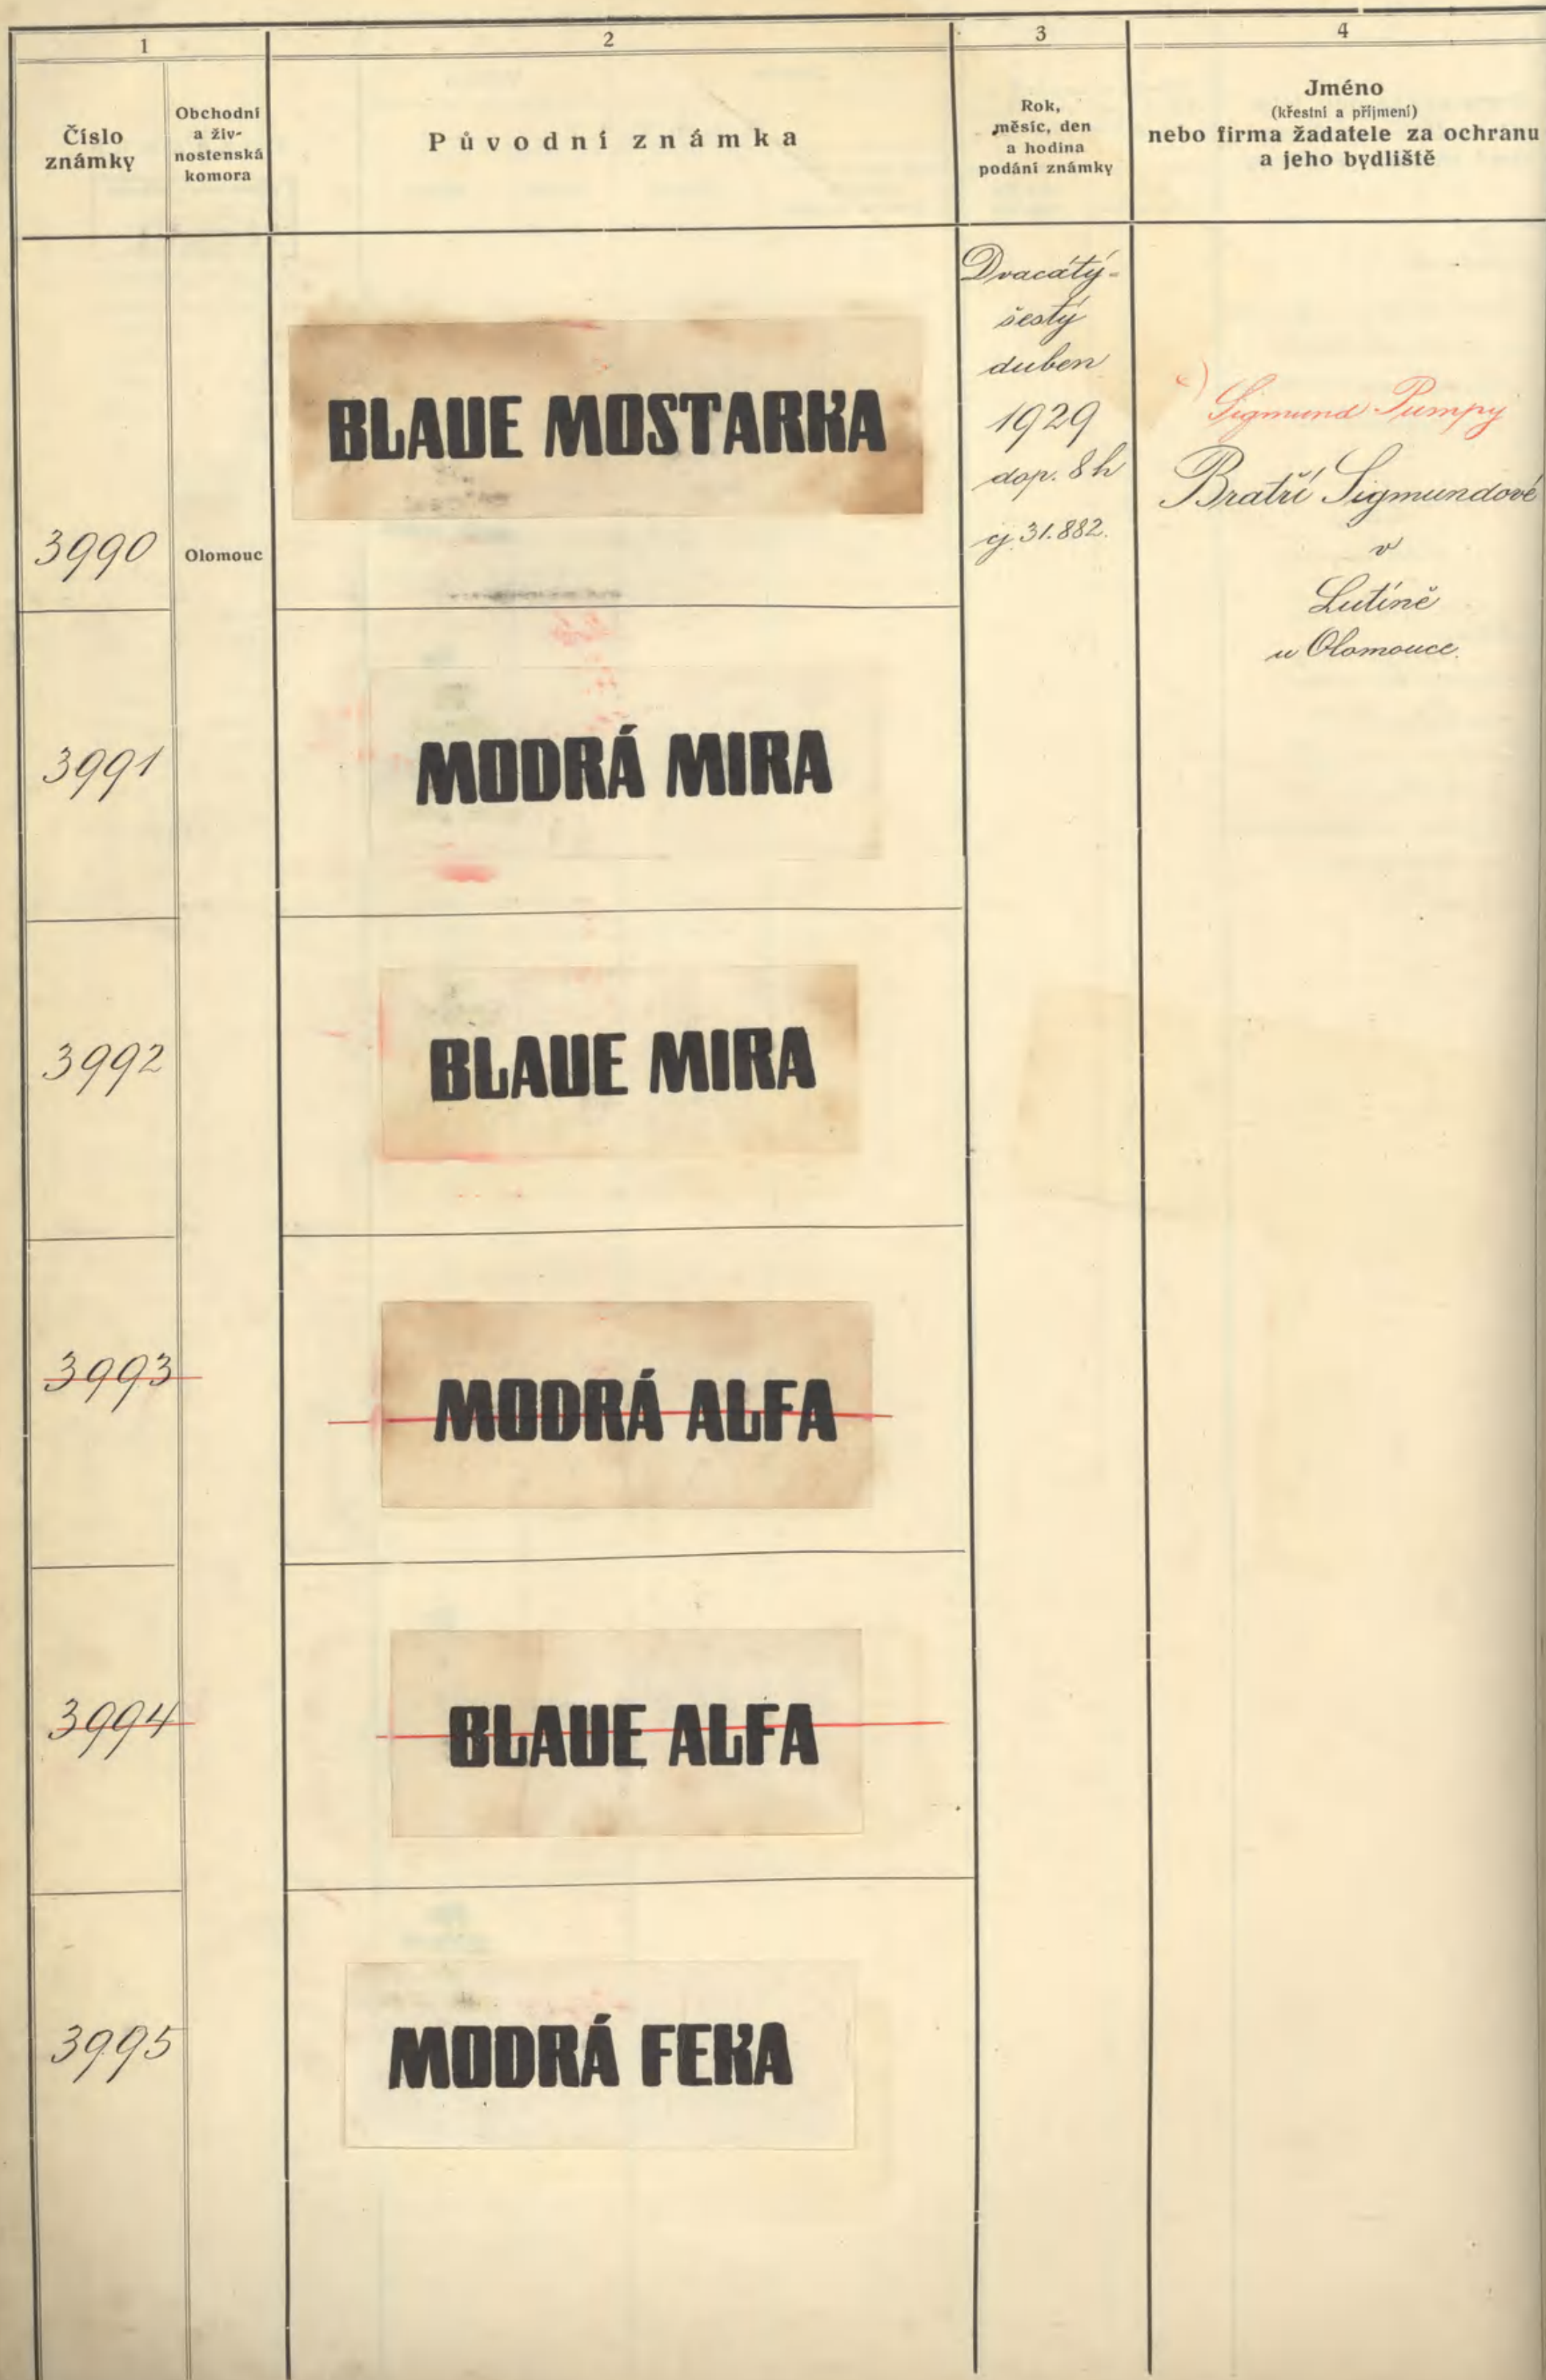 1
2
3
4
Číslo
známky
Obchodní
a živ-
nostenská
komora
Původní známka
Rok,
měsíc, den
a hodina
podání známky
Jméno
(křestní a příjmení)
nebo firma žadatele za ochranu
a jeho bydliště
3990
Olomouc
BLAUE MOSTARKA
Dvacátý-
šestý
duben
1929
dop. 8 h
čj. 31.882.
Sigmund Pumpy
Bratří Sigmundové
v
Lutíně
u Olomouce.
3991
MODRÁ MIRA
3992
BLAUE MIRA
3993
MODRÁ ALFA
3994
BLAUE ALFA
3995
MODRÁ FEKA